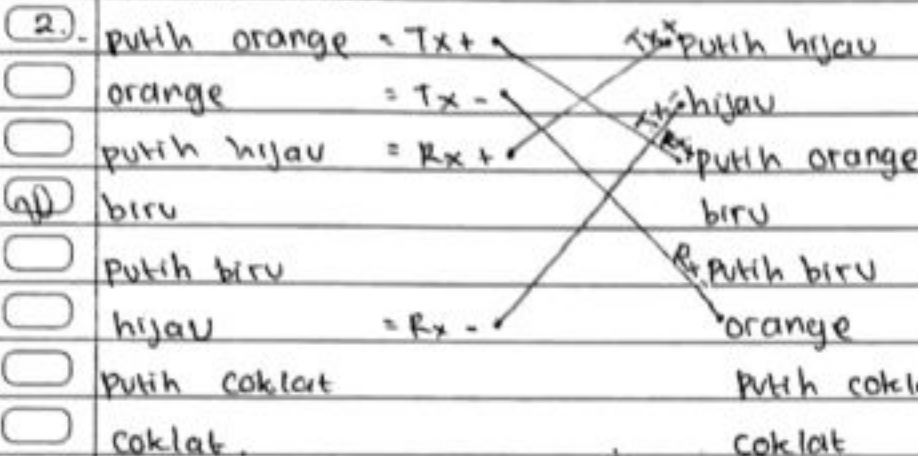 2. putih orange = Tx+ Tx+ putih hijau
orange = Tx - Tx- hijau
putih hijau = Rx + Rx+ putih orange
biru biru
putih biru Rx- putih biru
hijau = Rx - orange
putih coklat putih cokla
coklat. coklat